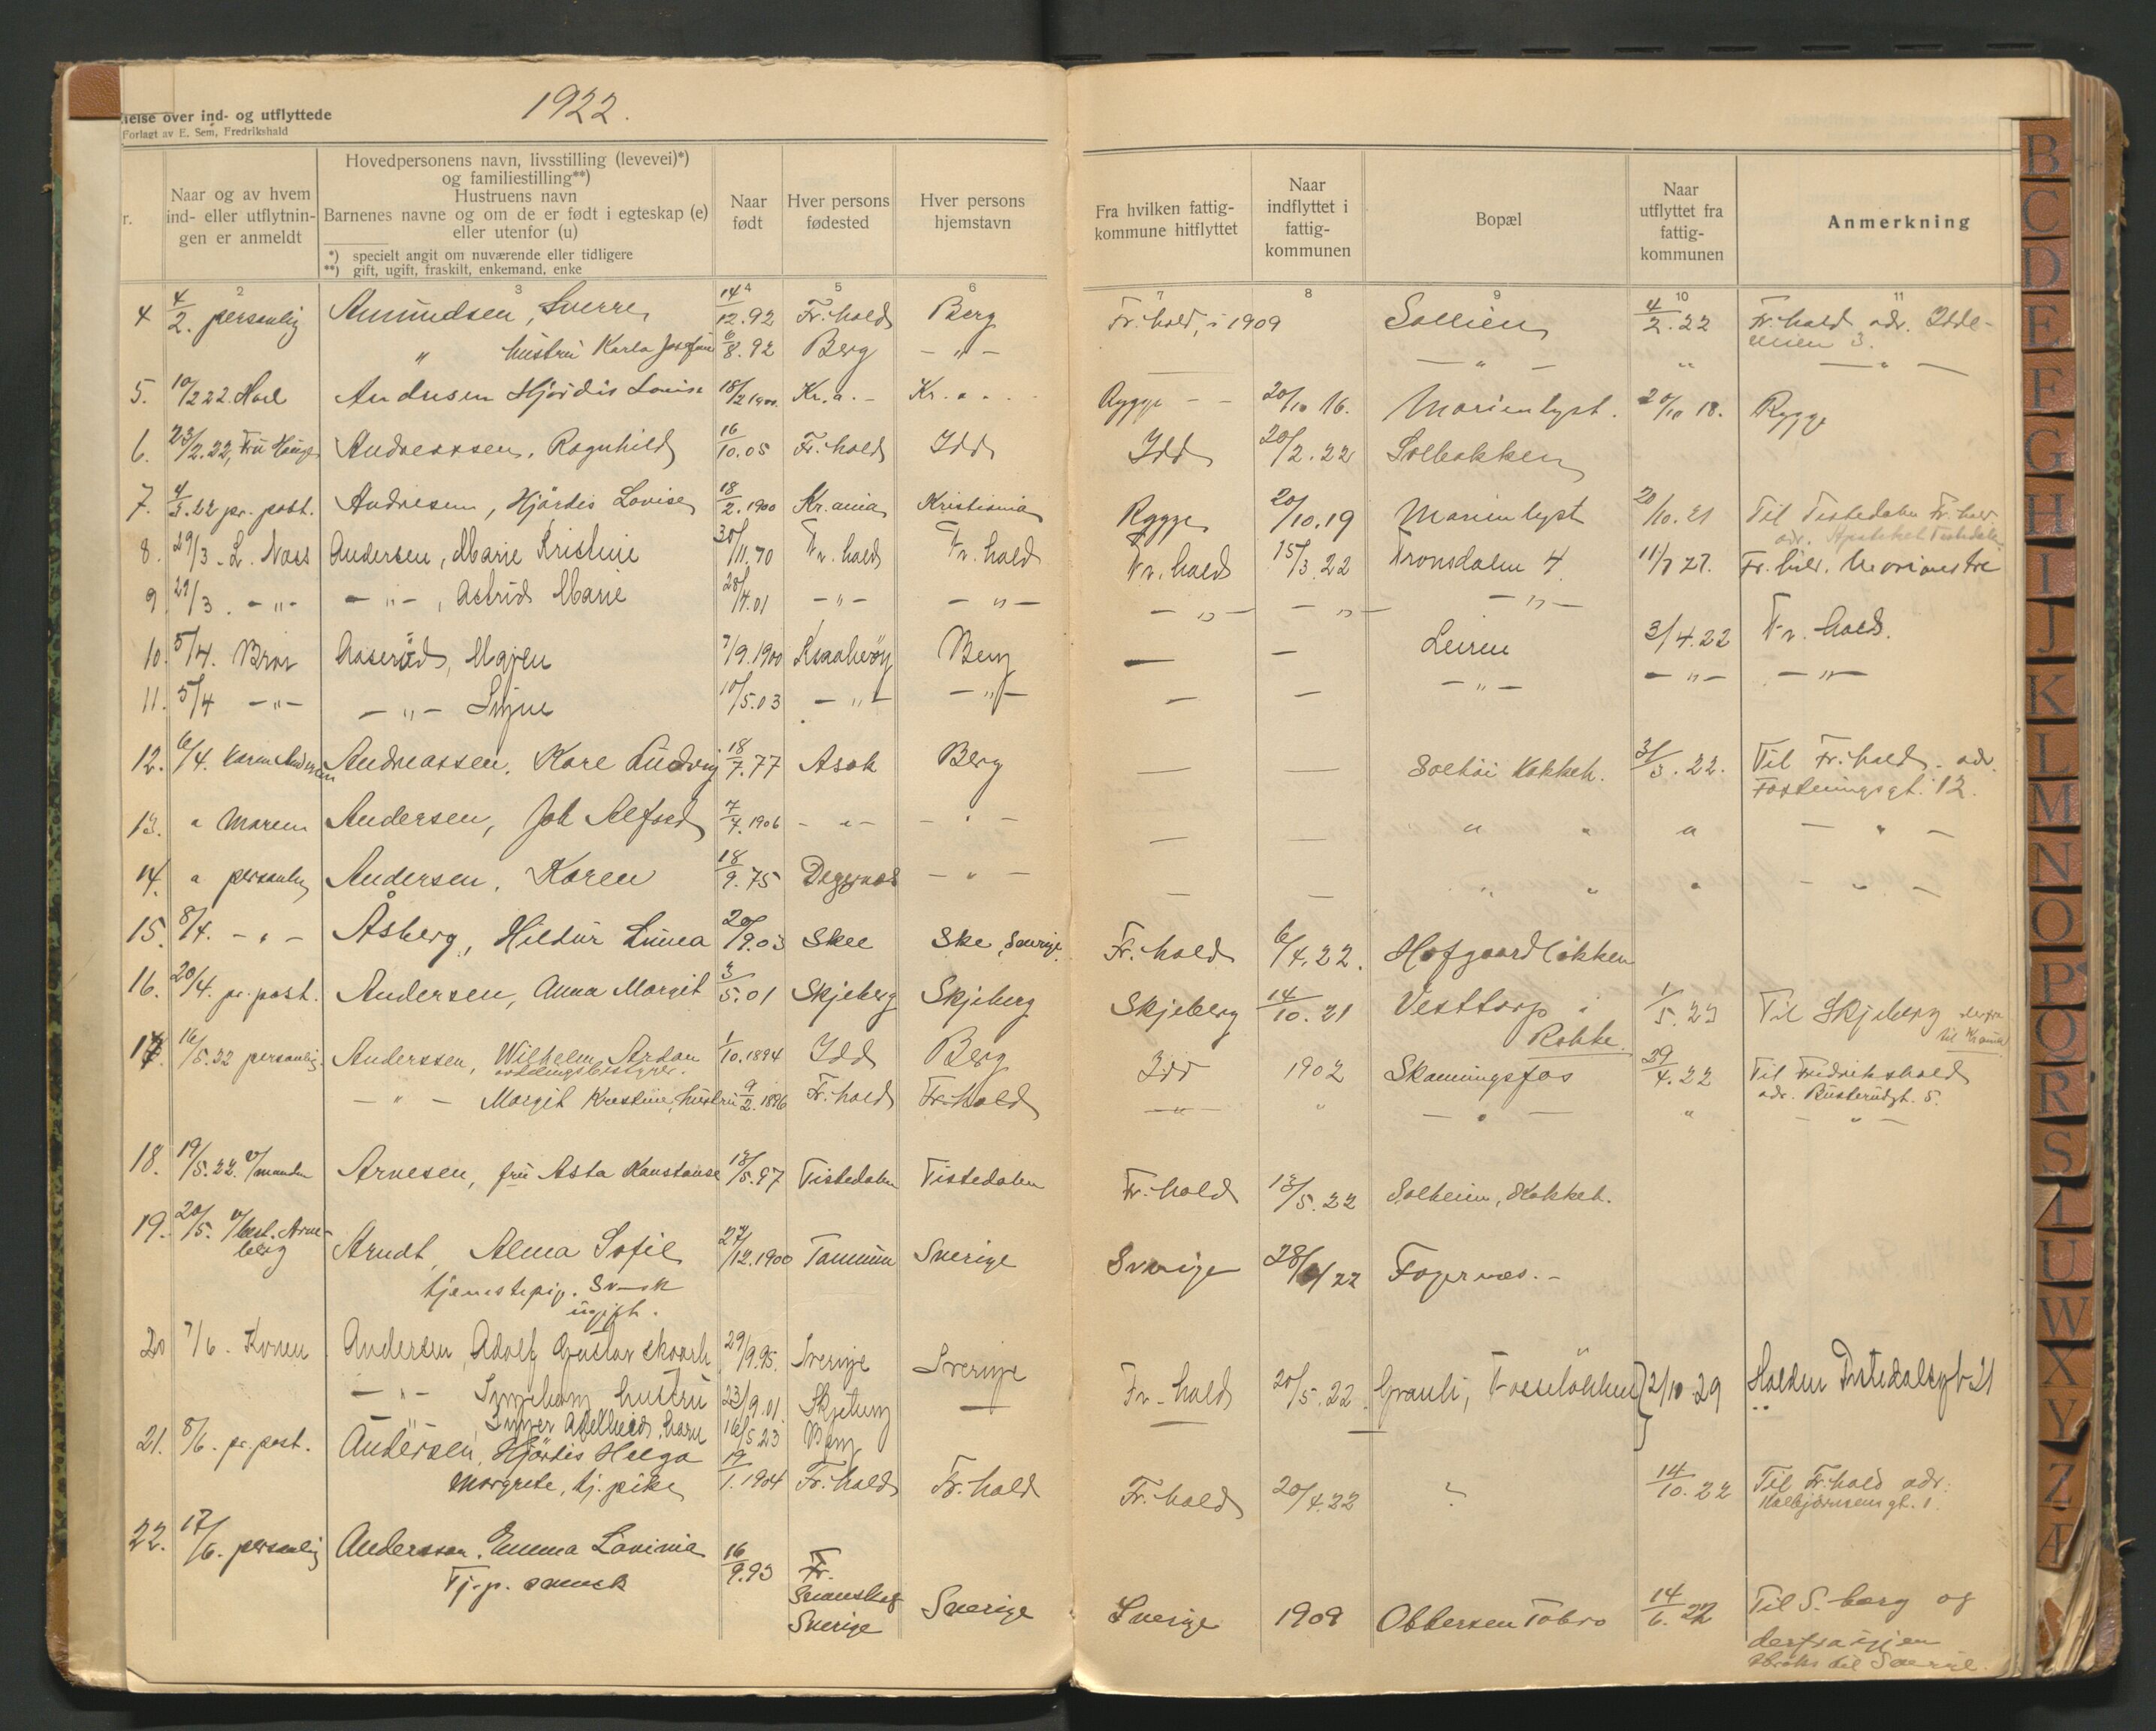 1922.
else over ind- og utflyttede
Forlagt av E. Sem, Fredrikshald
r.
Naar og av hvem
ind- eller utflytnin-
gen er anmeldt
Hovedpersonens navn, livsstilling (levevei)*)
og familiestilling**)
Hustruens navn
Barnenes navne og om de er født i egteskap (e)
eller utenfor (u)
*) specielt angit om nuværende eller tidligere
**) gift, ugift, fraskilt, enkemand, enke
Naar
født
Hver persons
fødested
Hver persons
hjemstavn
Fra hvilken fattig-
kommune hitflyttet
Naar
indflyttet i
fattig-
kommunen
Bopæl
Naar
utflyttet fra
fattig-
kommunen
Anmerkning
2 3 4 5 6 7 8 9 10 11
4 4/2. personlig Amundsen, Sverre 14/12.92 Fr.hald Berg Fr.hald, i 1909 Sollien 4/2.22 Fr.hald adr. Idde-
" hustru Karla Josefine 6/8.92 Berg - " - - " - " - " -
5. 10/2 22. Andresen Hjørdis Louise 18/2 1900. Kr.a. - Kr.a. Rygge - - 20/10 16. Marienlyst. 20/10 18. Rygge
6. 23/2.22, Fru Andreassen, Ragnhild 16/10.05 Fr.hald Idd Idd 20/2.22 Solbakken
7. 4/3.22 pr. post. Andresen, Hjørdis Lovise 18/2.1900 Kr.ania Kristiania Rygge 20/10.19 Marienlyst 20/10.21 Til Tistedalen Fr.hald
adr. Apotheket Tistedalen
8. 29/3 - L. Næss Andersen, Marie Kristine 30/11.70 Fr. hald Fr. hald Fr. hald 15/3.22 Tronsdalen 4 11/7 27. Fr.hald.
9 29/3. - " - - " -, Astrid Marie 28/4.01 - " - - " - - " - - " - - " -
10. 5/4. Bror Aaserød, Majen 7/9.1900 Berg — — Leiren 3/4.22 Fr. hald.
11. 5/4 - " - - " - Signe 10/5.03 - " - - " - — — - " - - " - - " -
12. 6/4. Karen Andersen Andreassen, Kare Ludvig 18/7.77 Asak Berg — — Soltøi Kokkeh. 31/3.22. Til Fr.hald. adr.
Fæstningsgt. 12.
13. " Moren Andersen, Joh Alfred 7/7.1906 - " - - " - — — " " " - " -
14. " personlig Andersen, Karen 18/9.75 Degernes - " - — — " " " - " -
15. 8/4. - " - Åsberg, Hildur Linnea 20/9.03 Skee Ske, Sverige. Fr.hald 6/4.22. Hofgaardløkken
16. 20/4. pr. post. Andersen, Anna Margit 3/5.01 Skjeberg Skjeberg Skjeberg 14/10.21 Vesttorp i
Rokke. 1/5.23 Til Skjeberg derfra
17. 16/5.22 personlig. Anderssen, Wilhelm 1/10.1894 Idd Berg Idd 1902 Skonningsfos 29/4.22 Til Fredrikshald
avdelingsbestyrer. adr. Busterudgt. 5.
- " - Margit Kristine, hustru 9/2.1896 Fr.hald Fr.hald - " - " - " - " - " -
18. 19/5.22. v/manden Arnesen, fru Asta Konstanse 13/5.97 Tistedalen Tistedalen Fr.hald 13/5.22 Solheim, Kokkeh.
19. 20/5. v/best. Arne-
berg Arndt, Alma Sofie 27/12.1900 Tanum Sverige Sverige 28/4/22 Fagernes. -
tjenestepig. Sv-sk
ugift.
20 7/6. Konen Andersen, Adolf Gustav 29/9.95. Sverige Sverige Fr. hald 20/5.22. Granli, Fosseløkken 2/10 29 Halden Tistedalsgt 21
- " - Ingeborg hustru 23/9.01. Skjeberg —
Inger Adelheid, barn 16/5 23 Berg
21. 8/6. pr. post. Andersen, Hjørdis Helga
Margrete, tj. pike 19/1.1904 Fr.hald Fr.hald Fr.hald 20/4.22 ? 14/10.22 Til Fr.hald adr.
Kolbjørnsensgt. 1.
22. 17/6. personlig Andersson, Emma Lovinia 16/9.93 Fr.
Tj.p. svensk Svanskog
Sverige Sverige Sverige 1909 Obbersen Tobro 14/6.22 Til S.borg og
derfra igjen
straks til Sverige.
B
C
D
E
F
G
H
I
J
K
L
M
N
O
P
Q
R
S
T
U
W
X
Y
Z
Æ